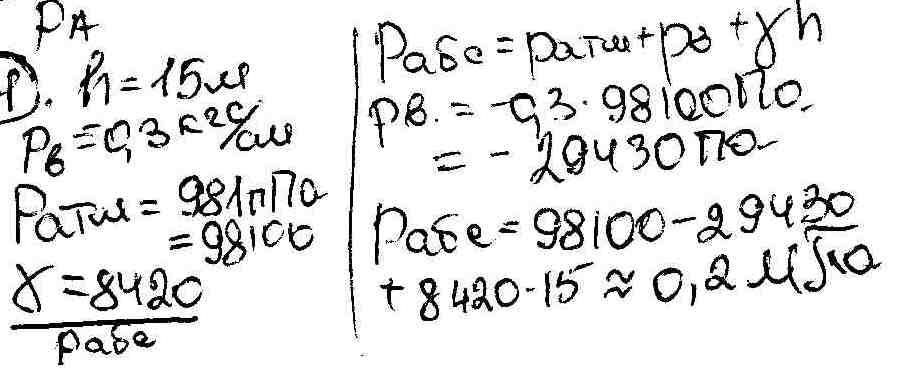 PA
1). h = 15м
Pв = 0,3 кгс/см
Pатм = 981пПа
= 98100
γ = 8420
Pабс
Pабс = pатм + pв + γh
pв. = -0,3 · 98100Па
= - 29430Па
Pабс = 98100 - 29430
+ 8420 · 15 ≈ 0,2 МПа